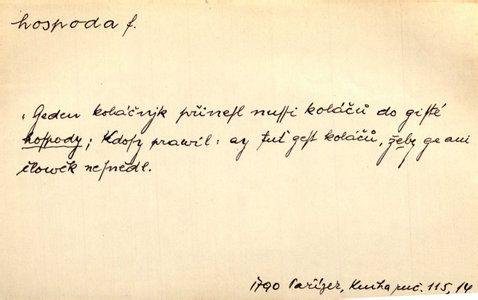 hospoda f.
Geden koláčnjk přinesl nussi koláčů do gisté
hospody; Kdosy prawil: ay tuť gest koláčů, žeby ge ani
člowěk nesnědl.
1790 Parizer, Kniha ruč. 115, 14